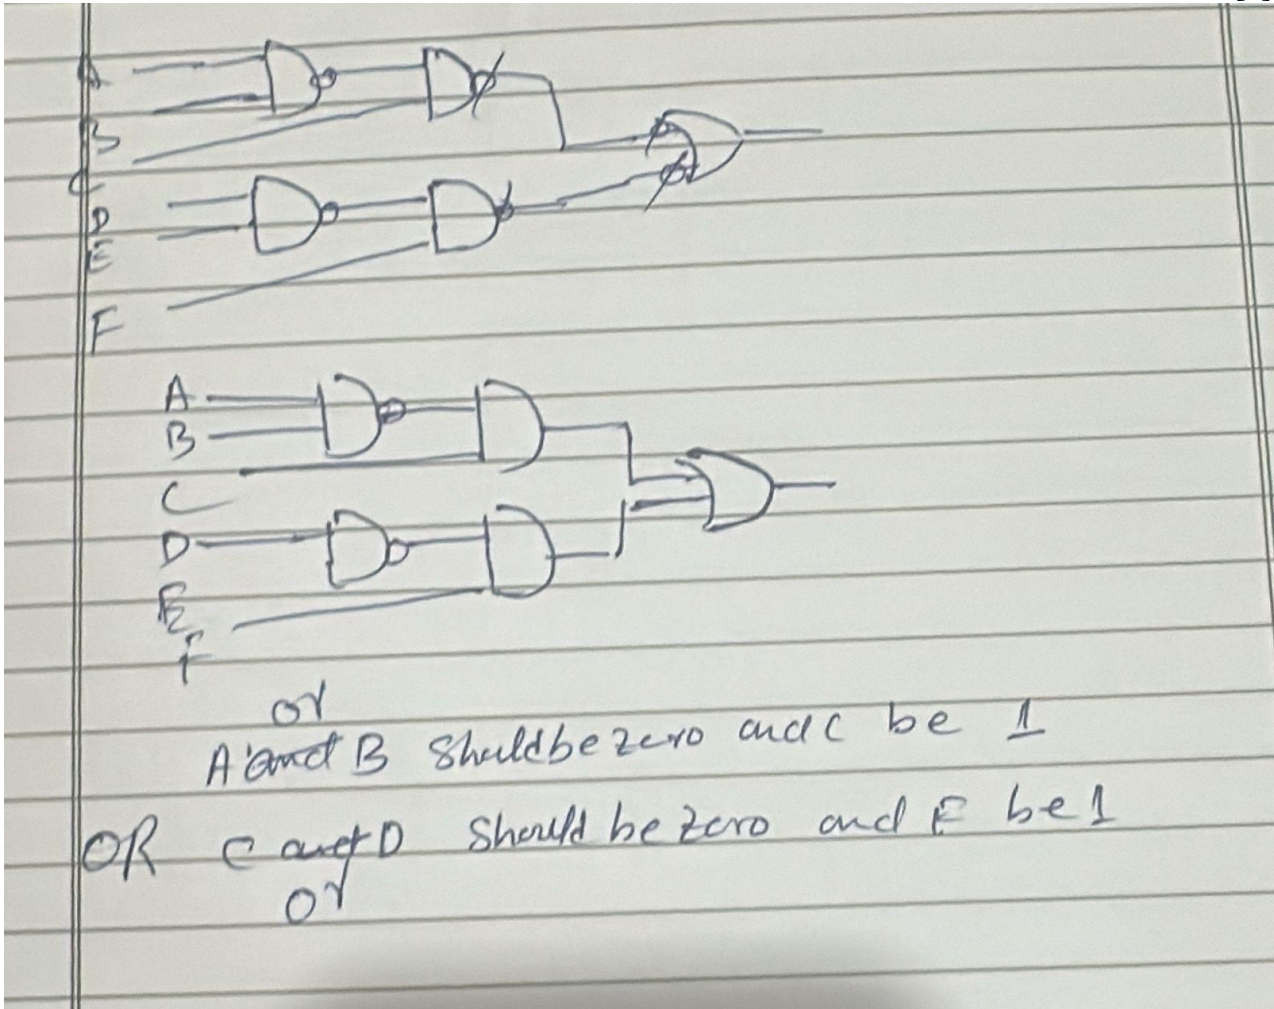 A
B
C
D
E
F
A
B
C
D
E
f
or
A and B should be zero and C be 1
OR C and D should be zero and E be 1
or